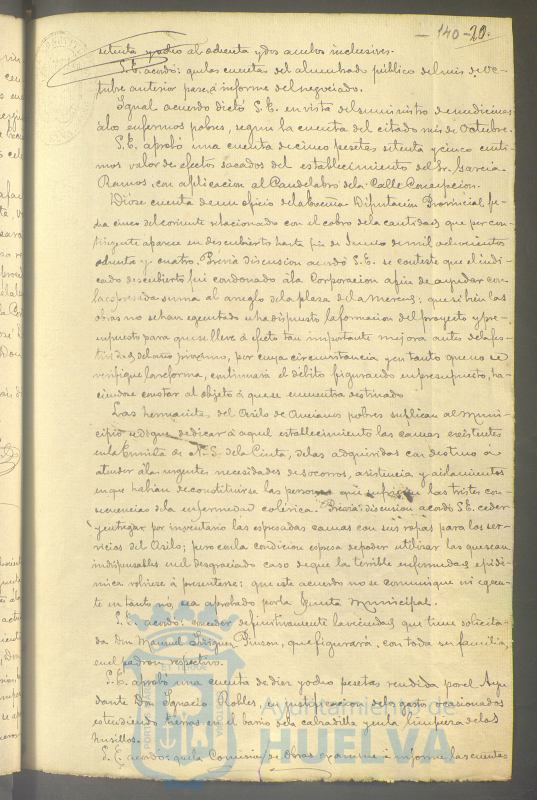 140 - 20.
setenta y ocho al ochenta y dos ambos inclusives.
S.E. acordó: que las cuentas del alumbrado público del mes de Oc-
tubre anterior pase á informe del negociado.
Igual acuerdo dictó S.E. en vista del suministro de medicinas
á los enfermos pobres, segun la cuenta del citado mes de Octubre.
S.E. aprobó una cuenta de cinco pesetas setenta y cinco centi-
mos valor de efectos sacados del establecimiento del Sr. Garcia
Ramos, con aplicacion al Candelabro de la Calle Concepcion.
Diose cuenta de un oficio de la Excma. Diputacion Provincial, fe-
cha cinco del corriente relacionado con el cobro de la cantidad que por con-
tingente aparece en descubierto hasta fin de Junio de mil ochocientos
ochenta y cuatro. Prévia discusion acordó S.E. se conteste que el indi-
cado descubierto fué condonado á la Corporacion á fin de ayudar con
la espresada suma al arreglo de la plaza de la Merced; que si bien las
obras no se han egecutado se ha dispuesto la formacion del proyecto y pre-
supuesto para que se lleve á efecto tan importante mejora antes de las fes-
tividades del año próximo, por cuya circunstancia y en tanto que no se
verifique la reforma, continuará el débito figurando en presupuesto, ha-
ciendose constar el objeto á que se encuentra destinado.
Las hermanitas del Asilo de Ancianos pobres suplican al Muni-
cipio se digne dedicar á aquel establecimiento las camas existentes
en la Ermita de N. S. de la Cinta, de las adquiridas con destino á
atender á las urgentes necesidades de socorros, asistencia y aislamientos
en que habian de constituirse las personas que las tristes con-
secuencias de la enfermedad colérica. Prévia discusion acordó S.E. ceder
y entregar por inventario las espresadas camas con sus ropas para los ser-
vicios del Asilo; pero con la condicion espresa de poder utilizar las que sean
indispensables en el desgraciado caso de que la terrible enfermedad epidé-
mica volviese á presentarse: que este acuerdo no se comunique ni egecu-
te en tanto no sea aprobado por la Junta Municipal.
S.E. acordó: conceder definitivamente la vecindad que tiene solicita-
da Don Manuel Pinzon, que figurará, con toda su familia,
en el padron respectivo.
S.E. aprobó una cuenta de diez y ocho pesetas rendida por el Ayu-
dante Don Ignacio Robles en justificacion del gasto ocasionado
estendiendo tierras en el barrio de la calzadilla y en la limpieza de los
husillos.
S.E. acordó: que la Comision de Obras examine é informe las cuentas
Ayuntamiento de
HUELVA